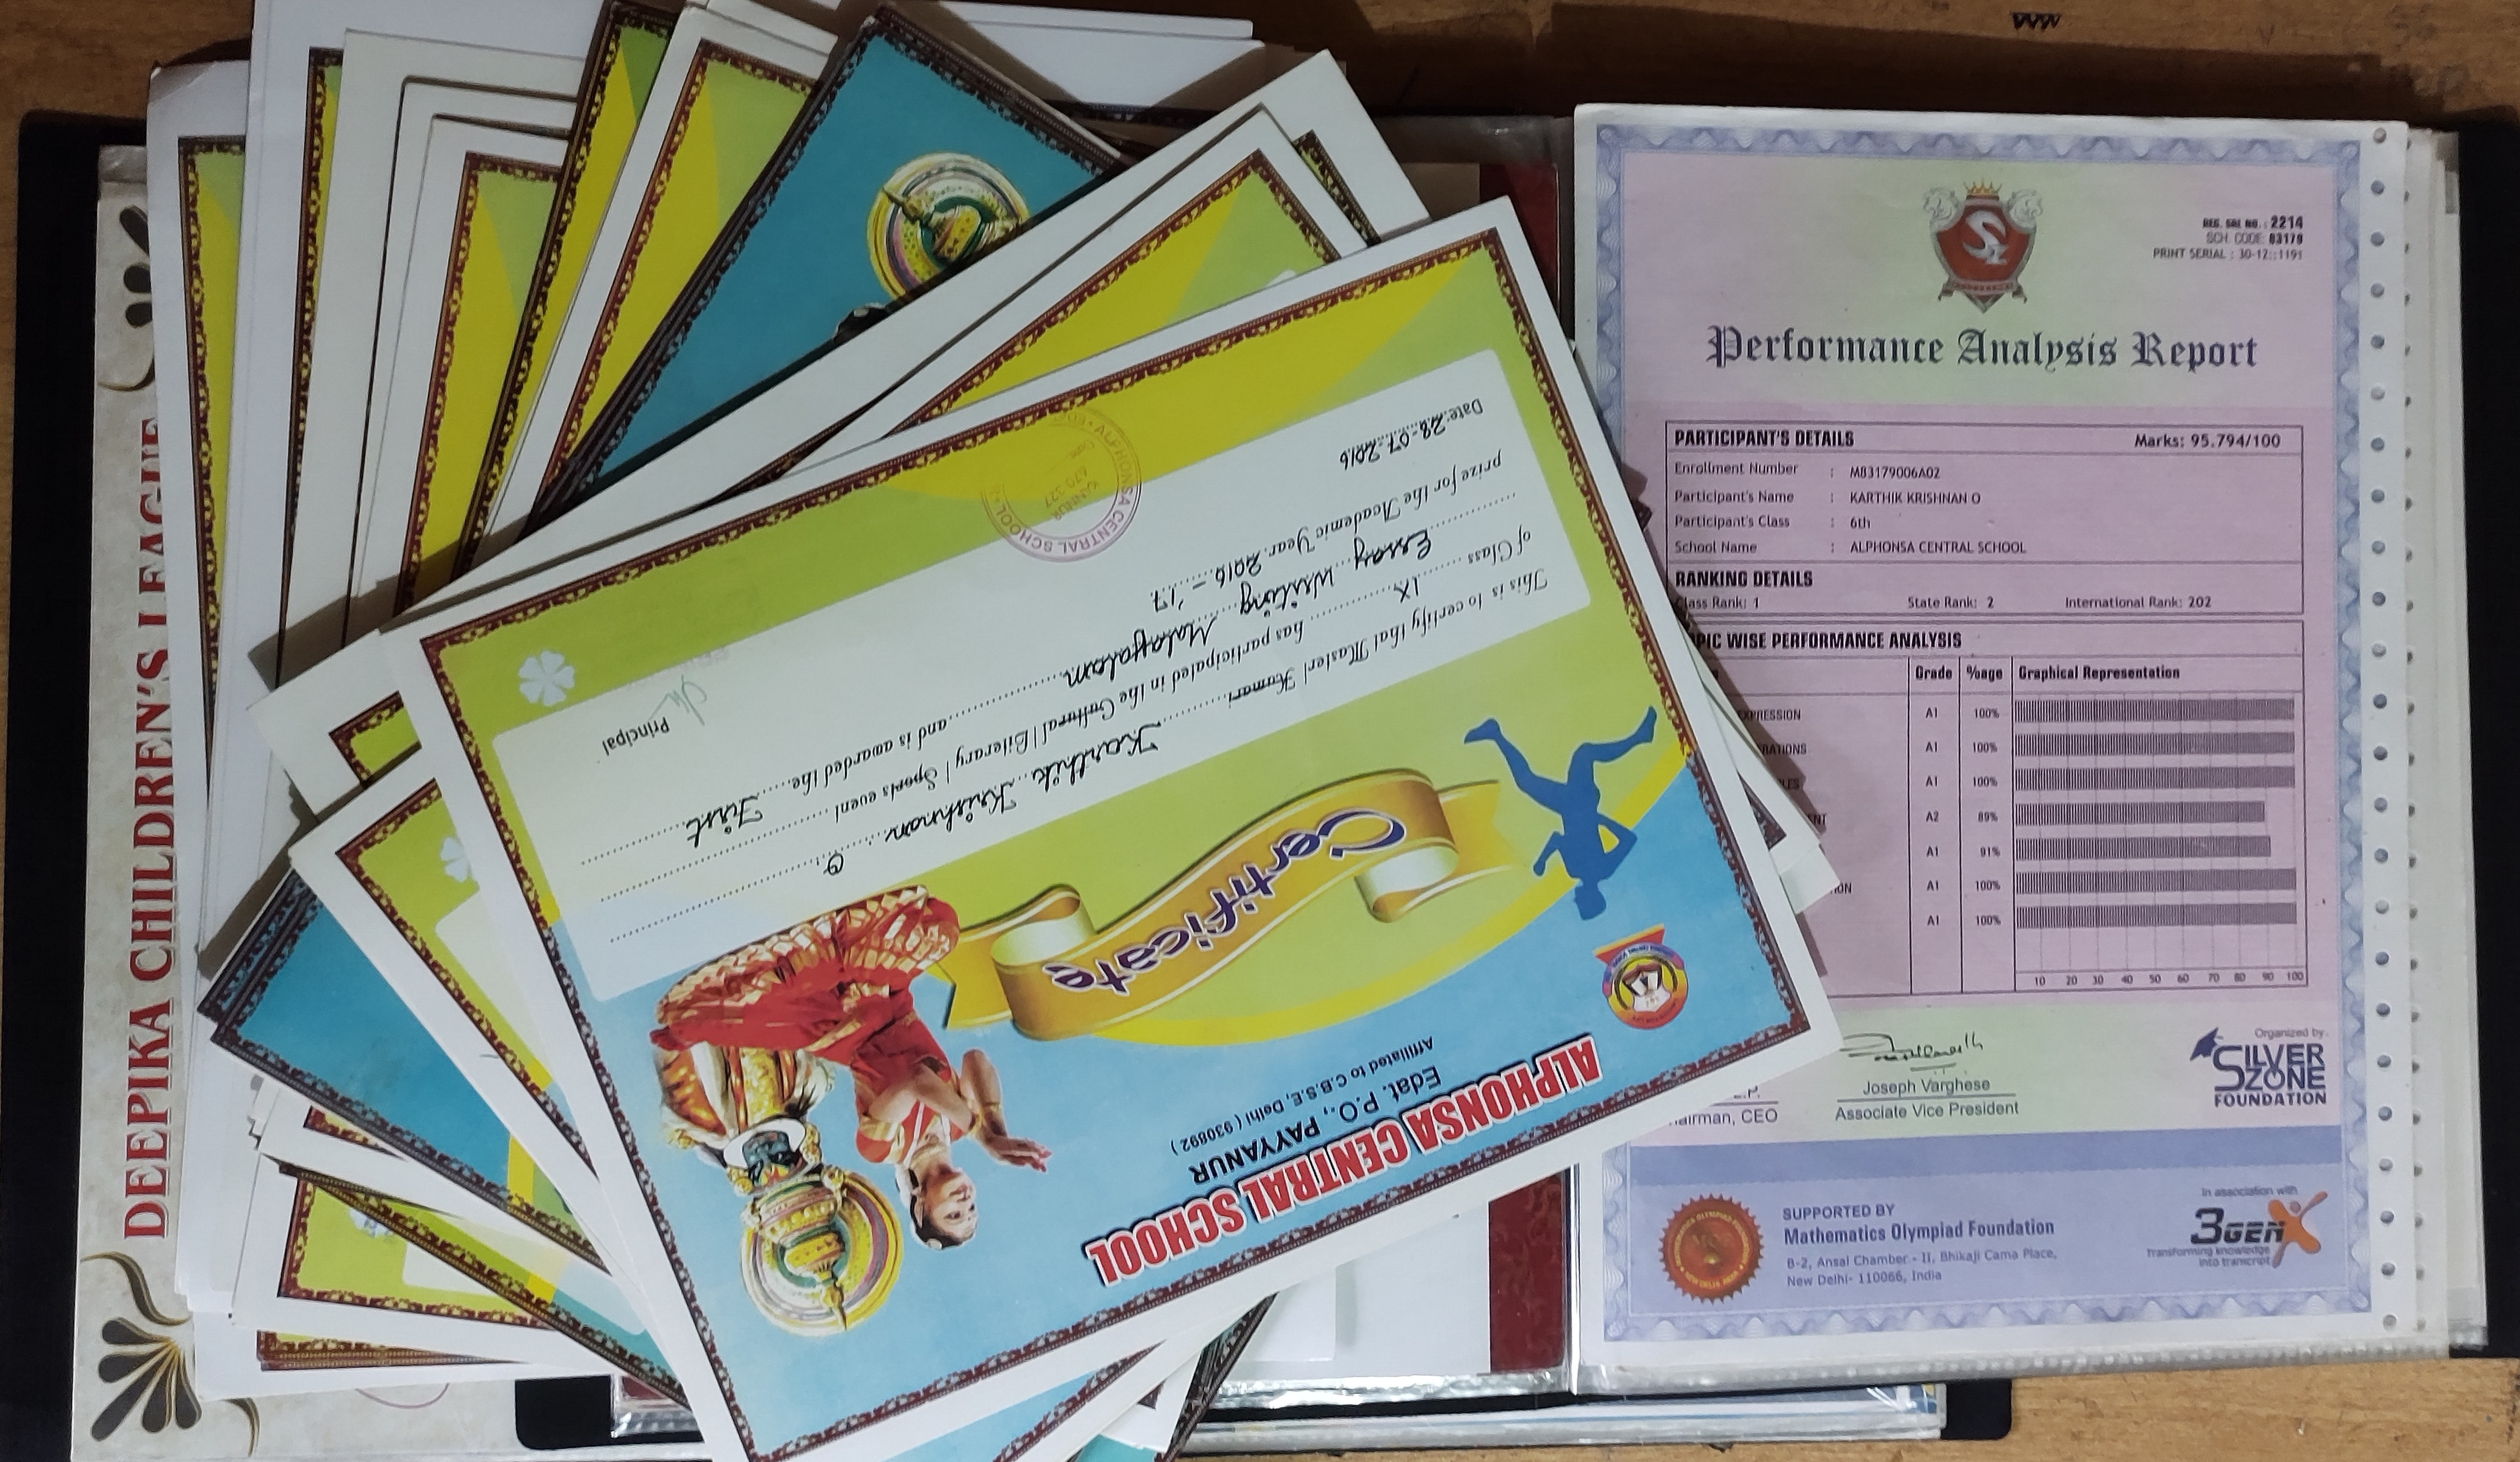 DEEPIKA CHILDREN'S LEAGUE
ALPHONSA CENTRAL SCHOOL
Edat. P.O., PAYYANUR
Affiliated to C.B.S.E, Delhi ( 930892 )
Certificate
This is to certify that Master/ Kumari Karthik Krishnan. O
of Class IX has participated in the Cultural / Literary / Sports event
Essay Writing Malayalam and is awarded the First
prize for the Academic Year 2016 - '17
Date: 28-07-2016
Principal
ALPHONSA CENTRAL SCHOOL
KANNUR
670 327
REG. SRL NO. : 2214
SCH. CODE: 83179
PRINT SERIAL : 30-12::1191
Performance Analysis Report
PARTICIPANT'S DETAILS Marks: 95.794/100
Enrollment Number : M83179006A02
Participant's Name : KARTHIK KRISHNAN O
Participant's Class : 6th
School Name : ALPHONSA CENTRAL SCHOOL
RANKING DETAILS
Class Rank: 1 State Rank: 2 International Rank: 202
PIC WISE PERFORMANCE ANALYSIS
Grade %age Graphical Representation
A1 100%
A1 100%
A1 100%
A2 89%
A1 91%
A1 100%
A1 100%
10 20 30 40 50 60 70 80 90 100
airman, CEO
Joseph Varghese
Associate Vice President
Organized by
SILVER
ZONE
FOUNDATION
SUPPORTED BY
Mathematics Olympiad Foundation
B-2, Ansal Chamber - II, Bhikaji Cama Place,
New Delhi- 110066, India
In association with
3GENX
Transforming knowledge
into transcript